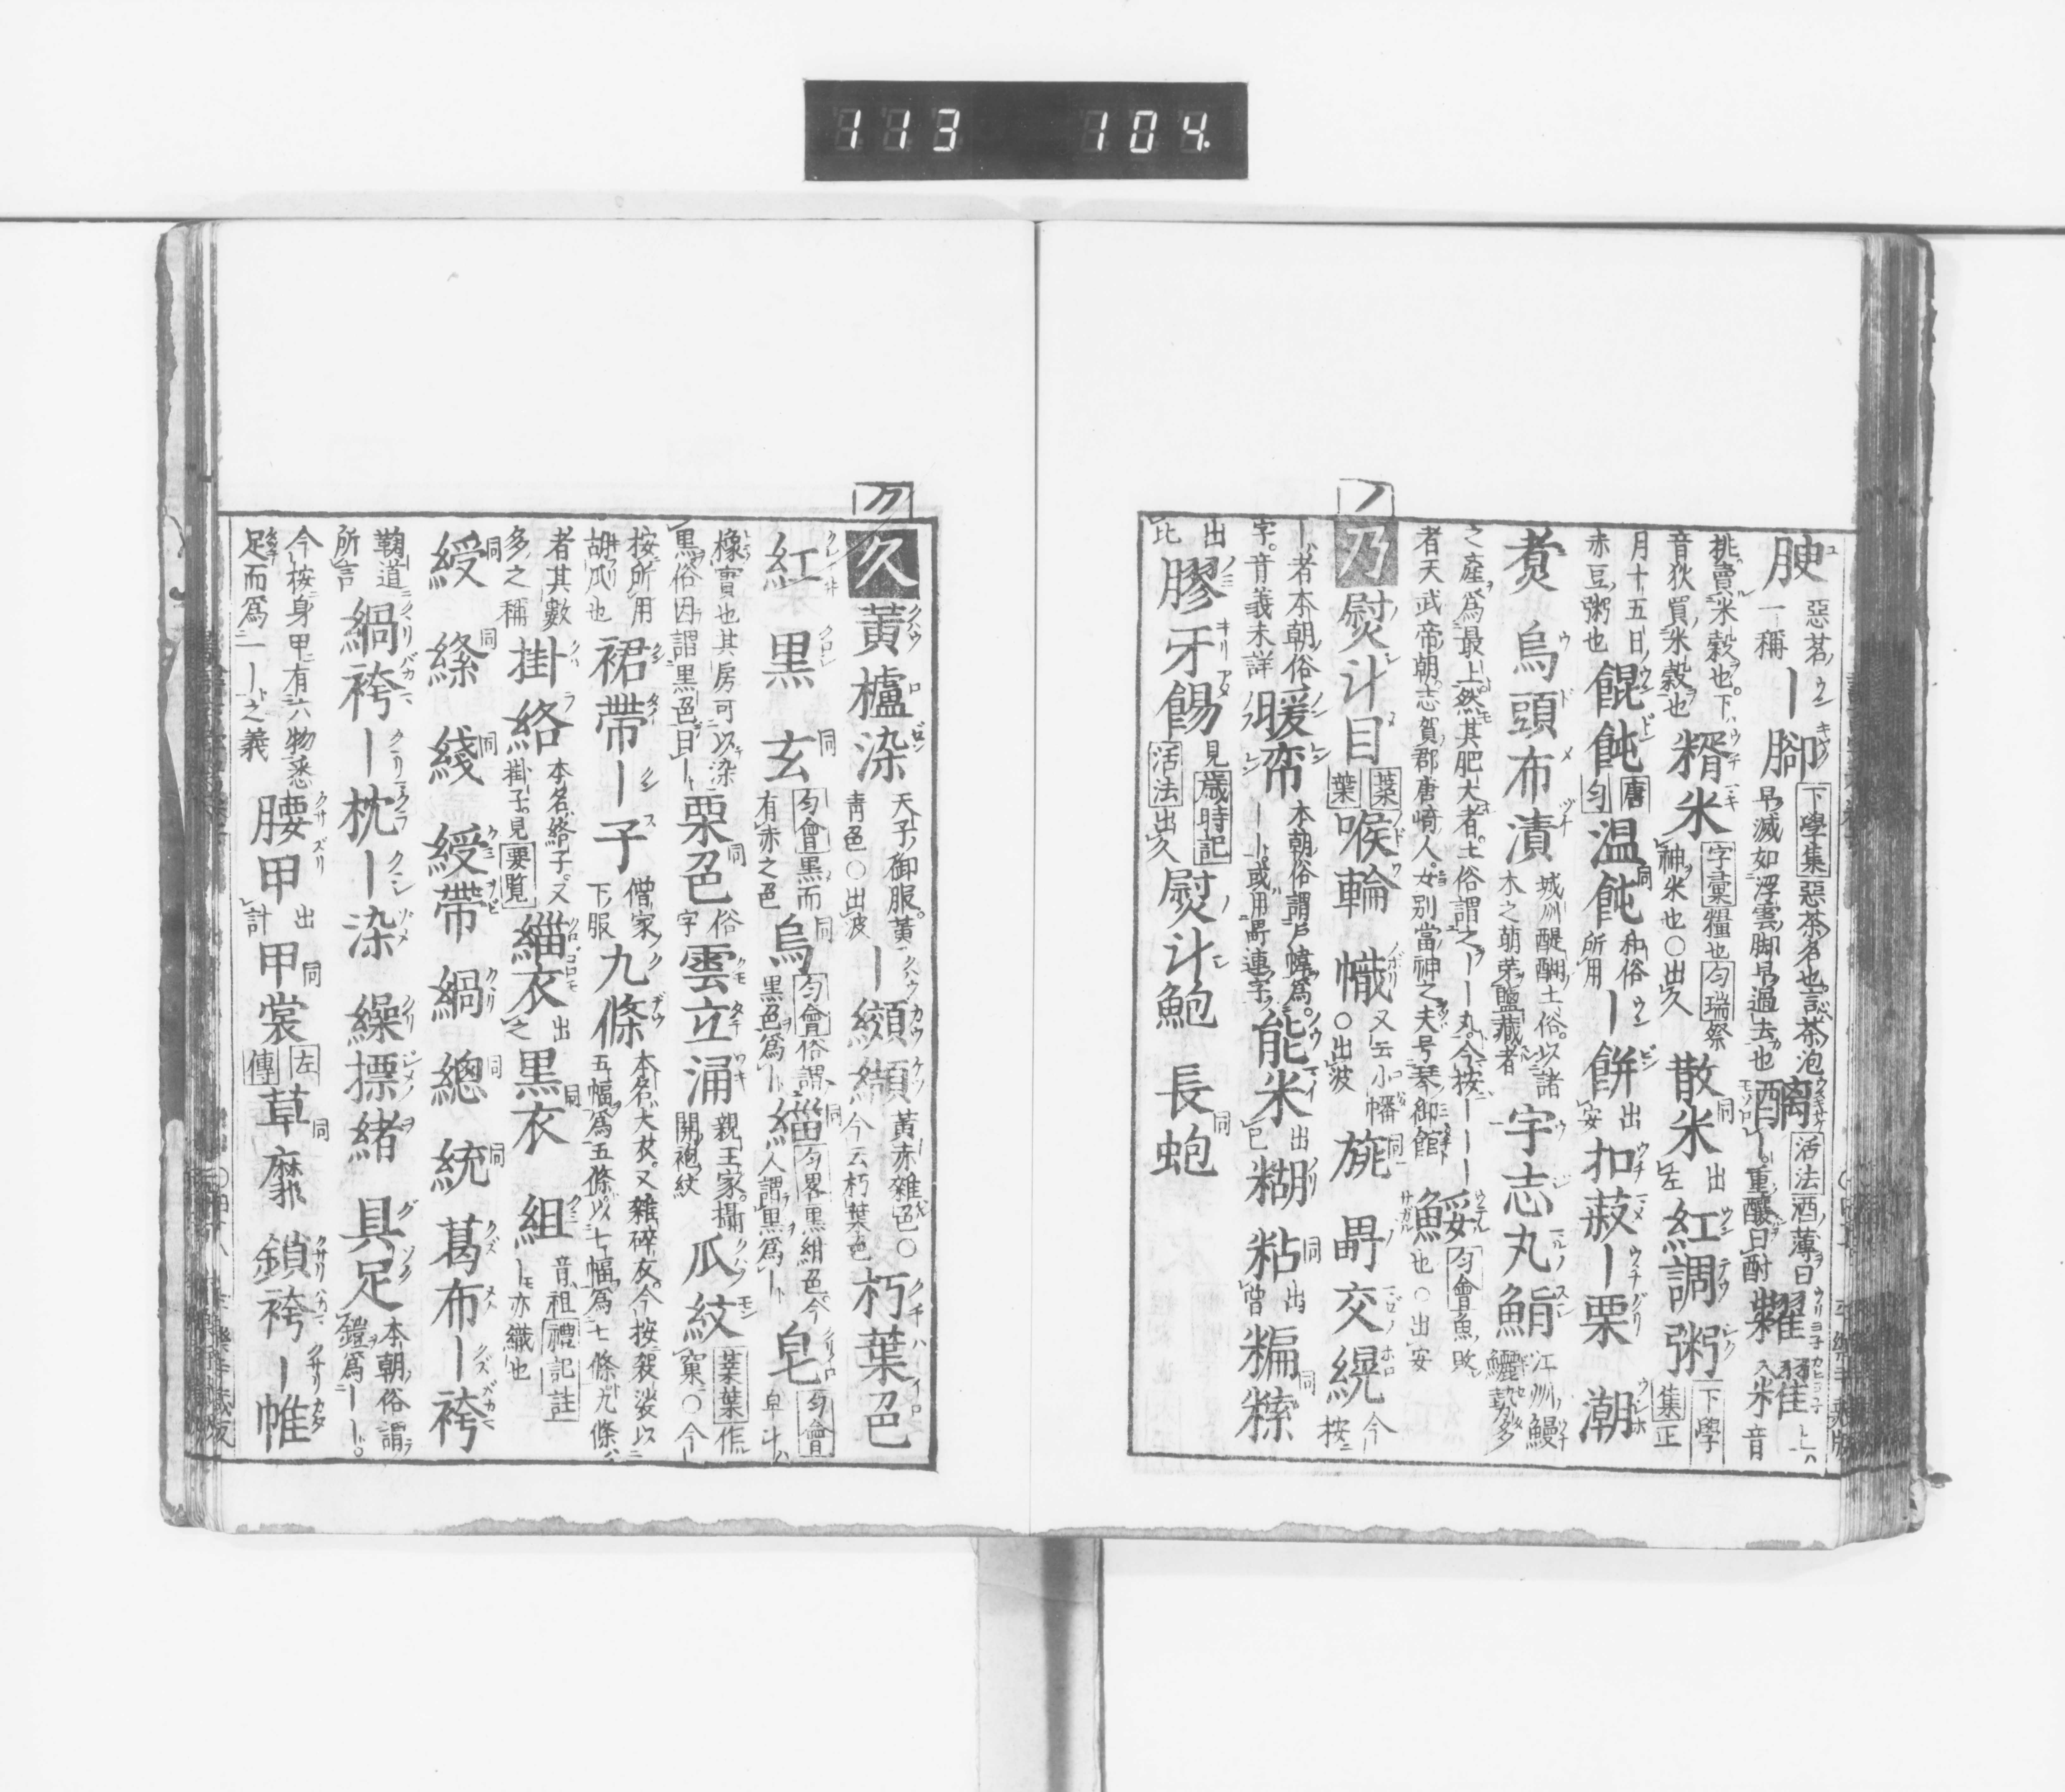 113 104.
腴 惡茗一稱 ｜腳 下學集惡茶名也言茶泡早滅如浮雲脚早過去也 醨 活法酒薄曰｜重釀曰酎 糶糴
挑賣米穀也下音狄買米穀也 糈米 字彙糧也匀瑞祭神米也○出久 散米 同出左 紅調粥 下學集正
月十五日赤豆粥也 餛飩 唐匀 温飩 同和俗所用 ｜餅 出安 扣菽 ｜栗 潮
煑 烏頭布漬 城州醍醐土俗以諸木之萌芽鹽藏者 宇志丸鮹 江州鰻鱺勢多
之産爲最上然其肥大者土俗謂之｜｜丸今按｜｜｜者天武帝朝志賀郡唐崎人女別當神之夫号琴御館 鮾 匀會魚敗也○出安
ノ
乃 熨斗目 葉 喉輪 幟 又云小幡○出波 旒 同 毌交繉 今按
｜者本朝俗字音義未詳 暖帘 本朝俗謂戸幃爲｜｜或用毌連字 能米 出已 糊 粘 同出曾 糄䊝 同
出比 膠牙餳 見歳時記活法出久 熨斗鮑 長蚫 同
ク
久 黃櫨染 天子御服黃青色○出波 ｜纐纈 黃赤雜色○今云朽葉色 朽葉色
紅 黒 玄 同匀會黒而有赤之色 烏 同匀會俗謂黒色爲｜ 緇 同匀畧黒紺色今人謂黒爲｜ 皂 匀會皁斗
橡實也其房可以染黒俗因謂黒色曰｜ 栗色 同俗字 雲立涌 親王家攝關袍紋 瓜紋 葉葉作窠○今
按所用胡瓜也 裙帶 ｜子 僧家下服 九條 本名大衣又雜碎衣今按袈裟以五幅爲五條以七幅爲七條九條
者其數多之稱 掛絡 本名絡子又掛子見要覧 緇衣 出之 黒衣 同 組 音祖禮記註｜亦織也
綬 同 絛 同 綫 同 綬帶 緺 總 同 統 同 葛布 ｜袴
鞠道所言 緺袴 ｜枕 ｜染 繰摽緒 具足 本朝俗謂鎧爲｜｜
今按身甲有六物悉足而爲一｜之義 腰甲 出計 甲裳 同左傳 草摩 同 鎖袴 ｜帷